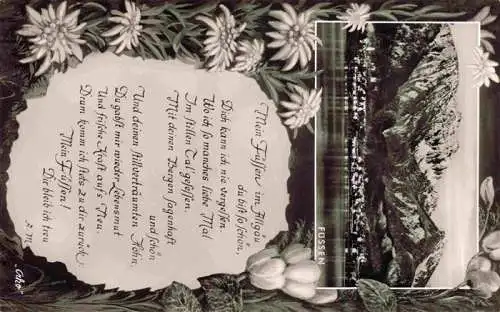 Mein Füssen im Allgäu
du bist so schön,
Dich kann ich nie vergessen.
Wo ich so manches liebe Mal
Im stillen Tal gesessen.
Mit deinen Bergen sagenhaft
und schön
Und deinen stillverträumten Höhn,
Du gabst mir wieder Lebensmut
Und frische Kraft aufs Neu.
Drum komm ich stets zu dir zurück,
Mein Füssen!
Dir bleib ich treu
FÜSSEN